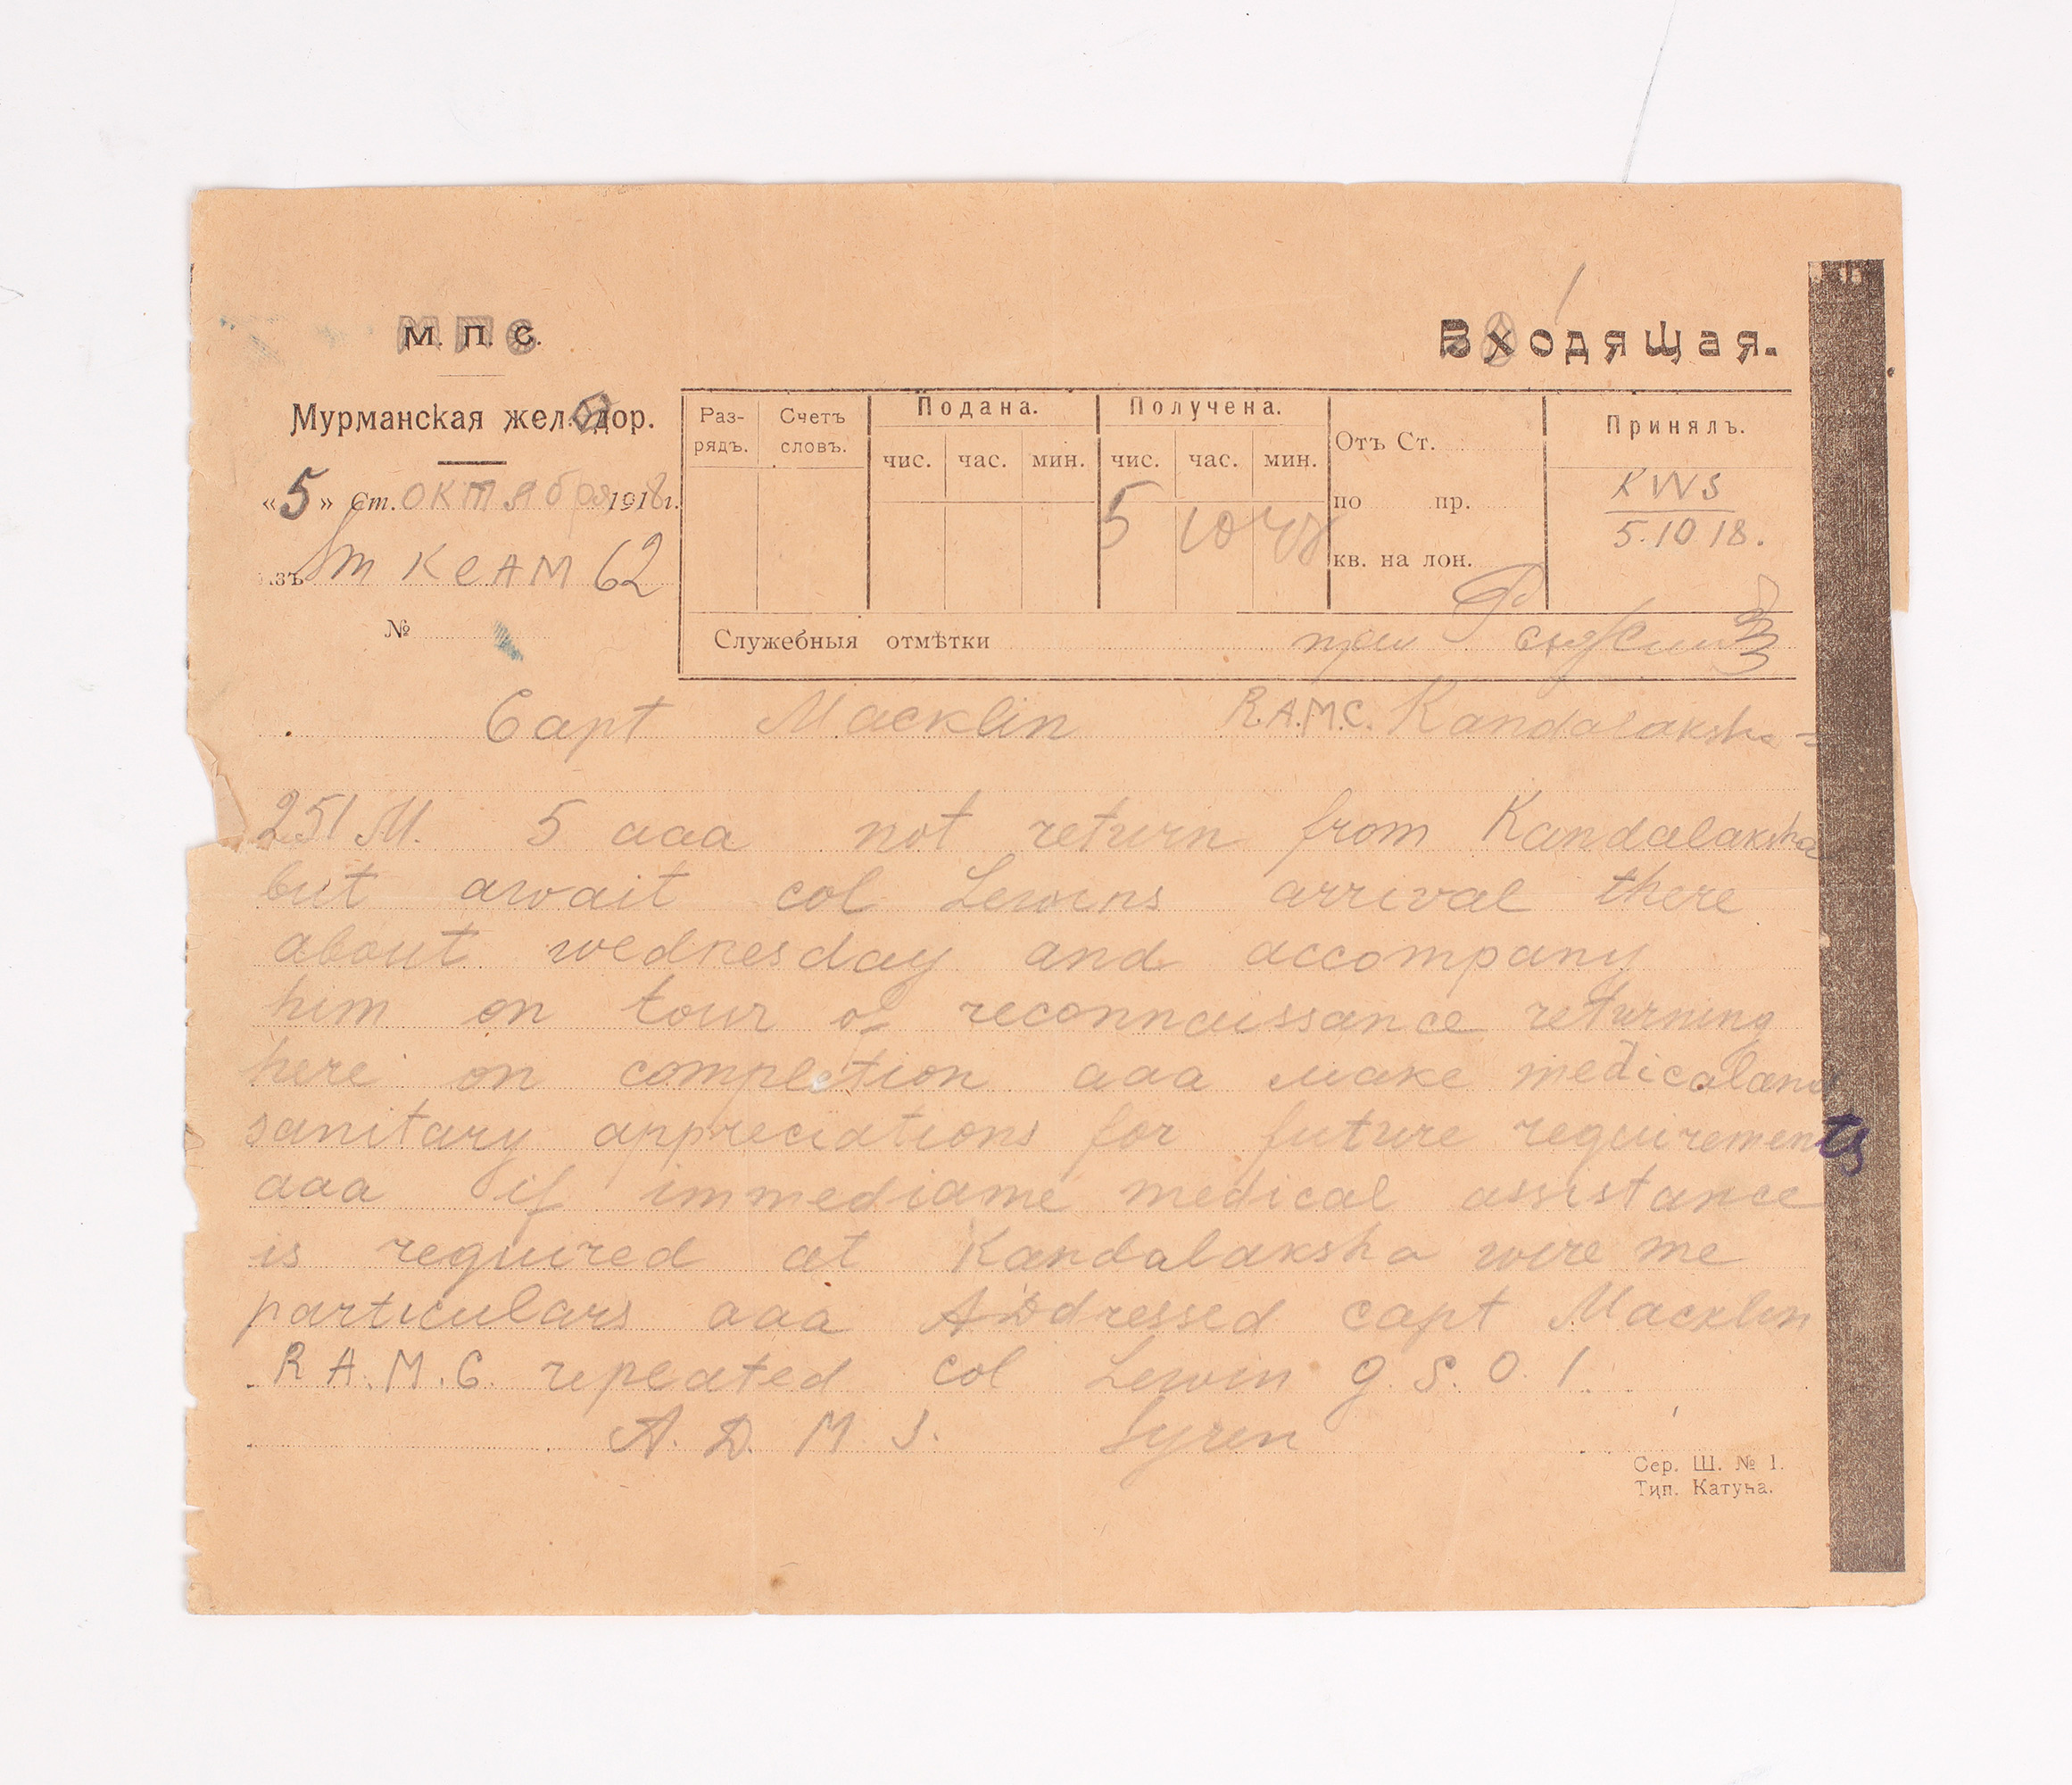 М. П. С.
Входящая.
Мурманская жел. дор.
«5» Ст. октября 1918 г.
КеАМ 62
№
Раз-рядъ.
Счетъ словъ.
Подана.
чис. час. мин.
Получена.
чис. час. мин.
5 10
Отъ Ст.
по пр.
кв. на лон.
Принялъ.
KWS
5.10 18.
Служебныя отмѣтки
Capt Macklin R.A.M.C. Kandalaksha =
251 M. 5 aaa not return from Kandalaksha
but await col Lewins arrival there
about wednesday and accompany
him on tour of reconnaissance returning
here on completion aaa make medical and
sanitary appreciations for future requirements
aaa if immediame medical assistance
is required at Kandalaksha wire me
particulars aaa Addressed capt Macklin
R A.M.C. repeated col Lewin g.S.O.1.
A. D. M S. Syren
Сер. Ш. № 1.
Тип. Катуна.